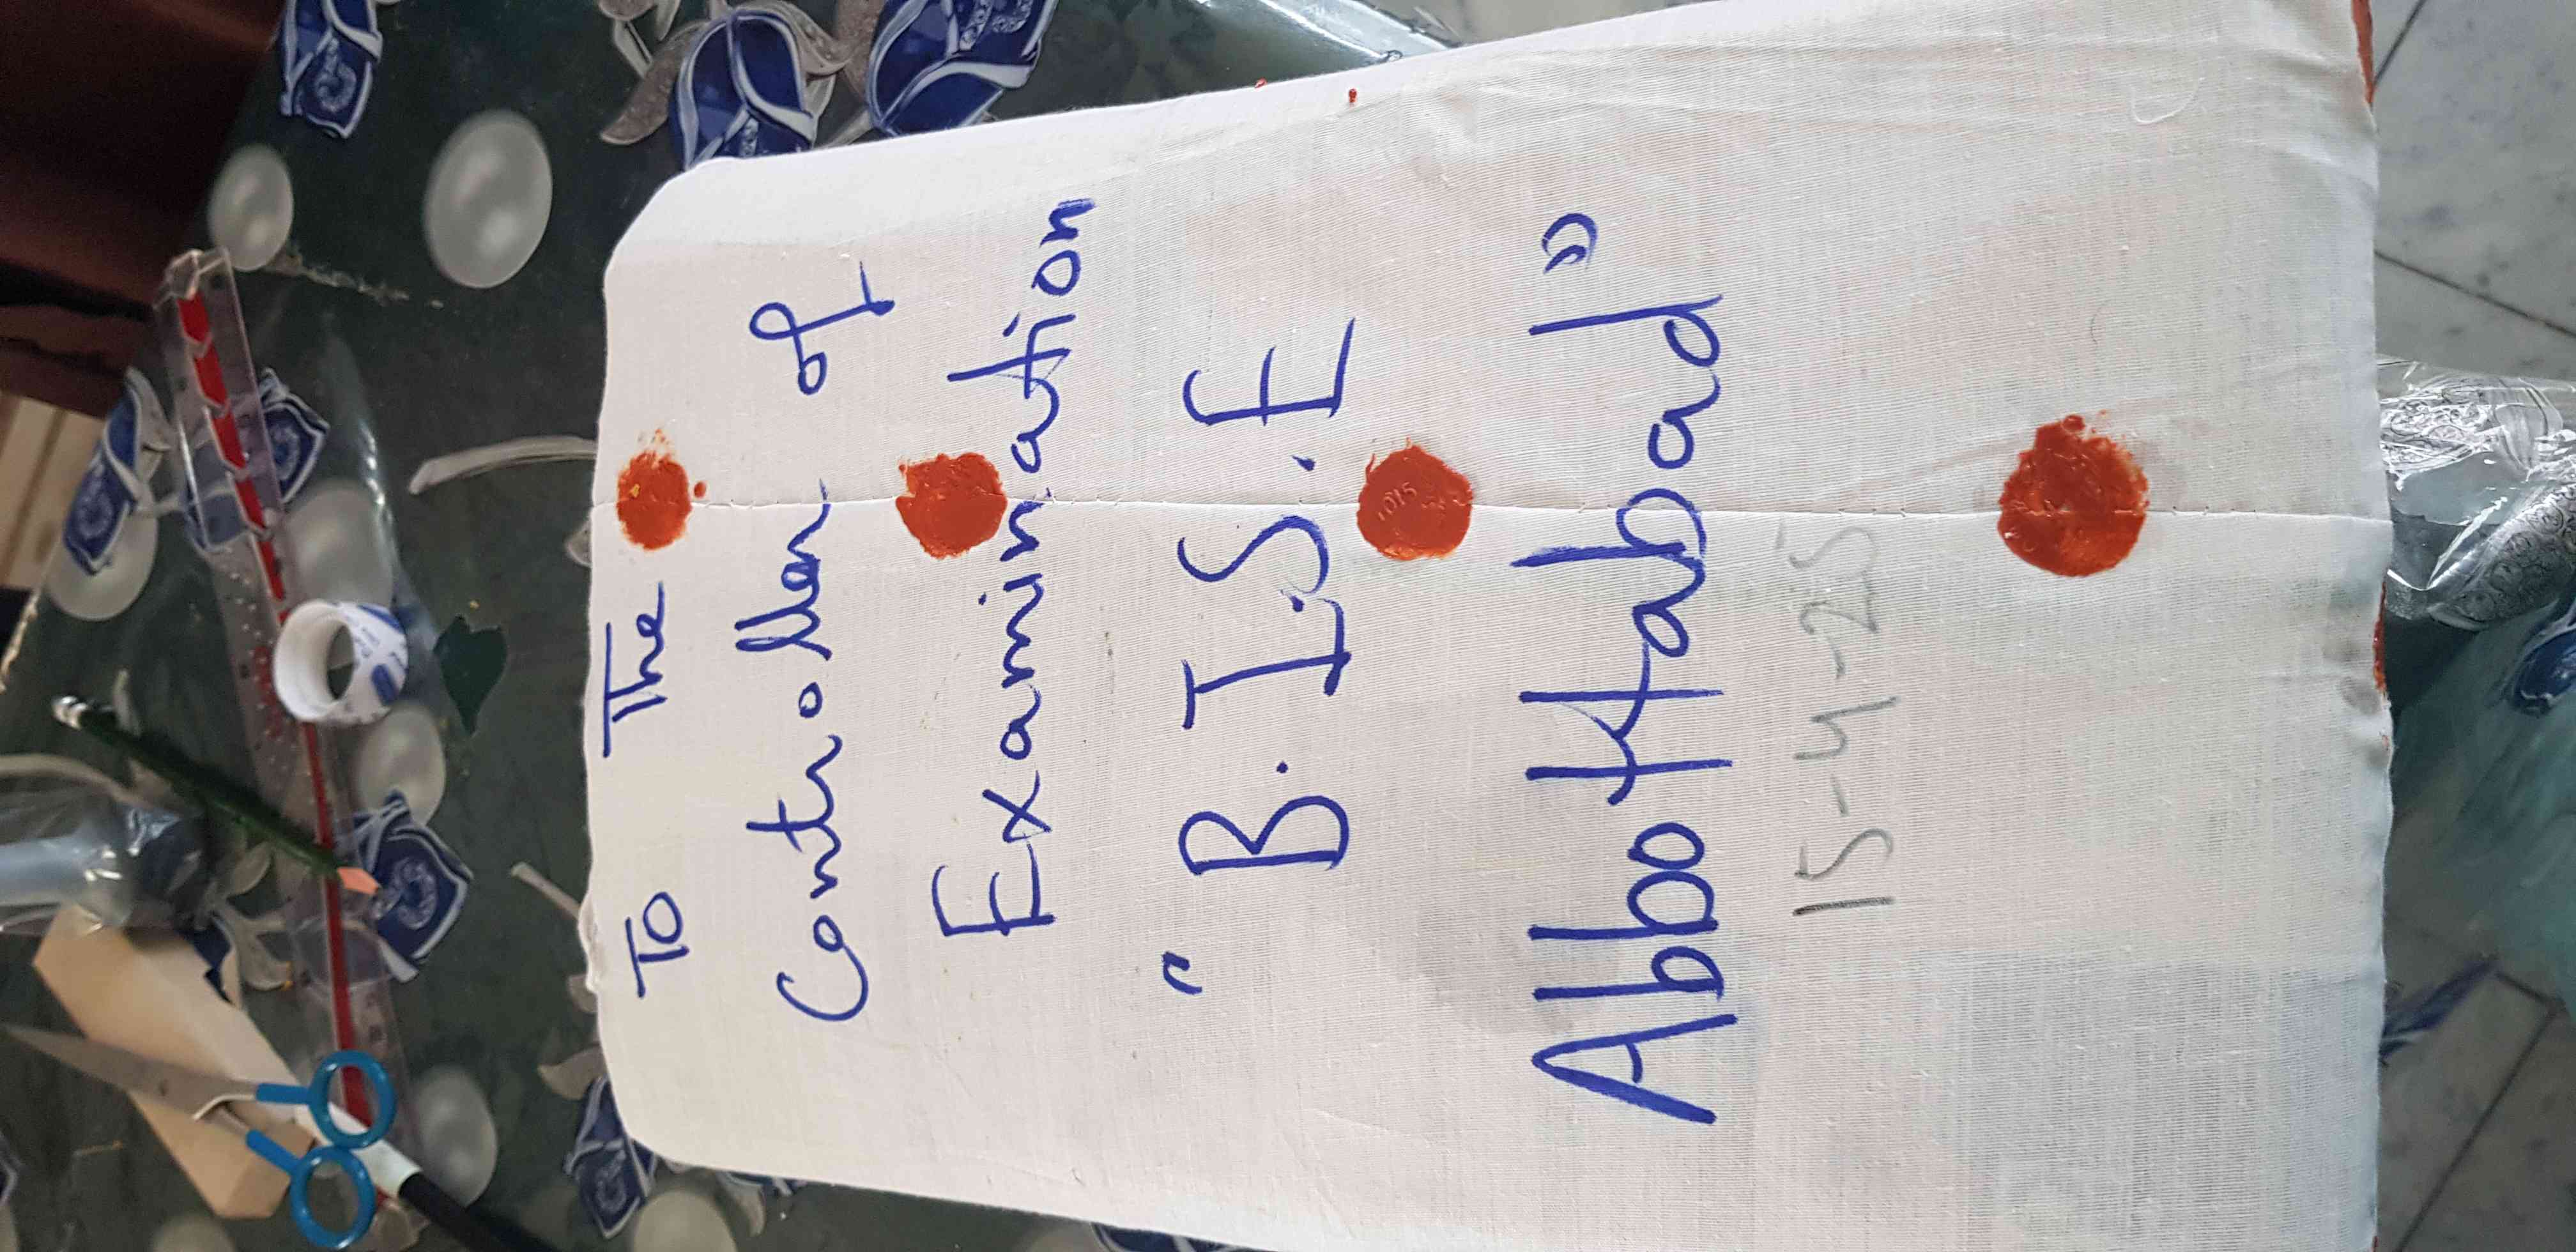 To The
Controller of
Examination
" B.I.S.E
Abbottabad"
15-4-25
1015